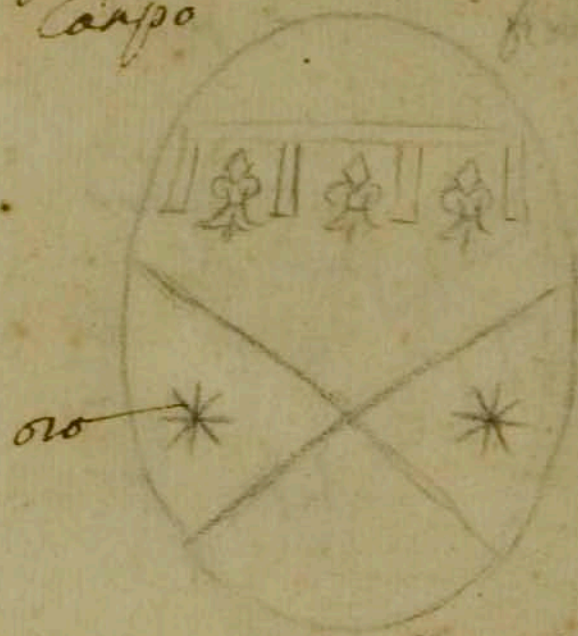 Campo
oro